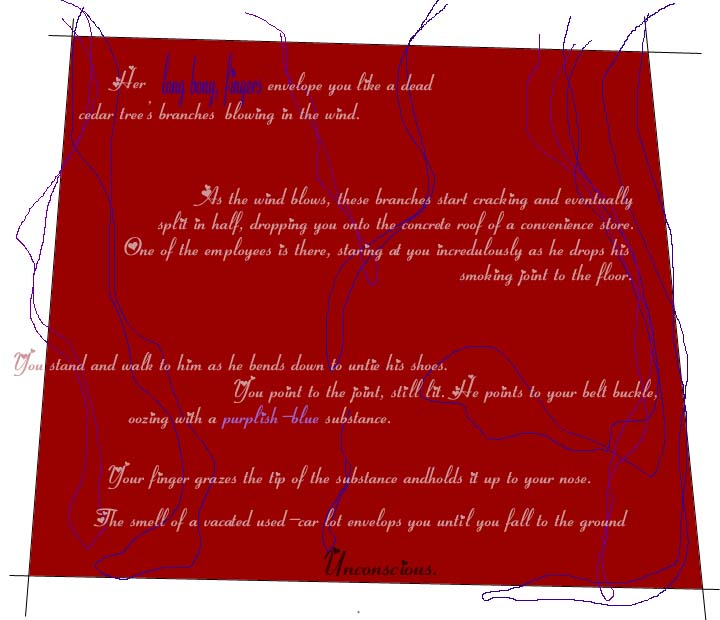 Her long bony, fingers envelope you like a dead
cedar tree's branches blowing in the wind.
As the wind blows, these branches start cracking and eventually
split in half, dropping you onto the concrete roof of a convenience store.
One of the employees is there, staring at you incredulously as he drops his
smoking joint to the floor.
You stand and walk to him as he bends down to untie his shoes.
You point to the joint, still lit. He points to your belt buckle,
oozing with a purplish-blue substance.
Your finger grazes the tip of the substance andholds it up to your nose.
The smell of a vacated used-car lot envelops you until you fall to the ground
Unconscious.